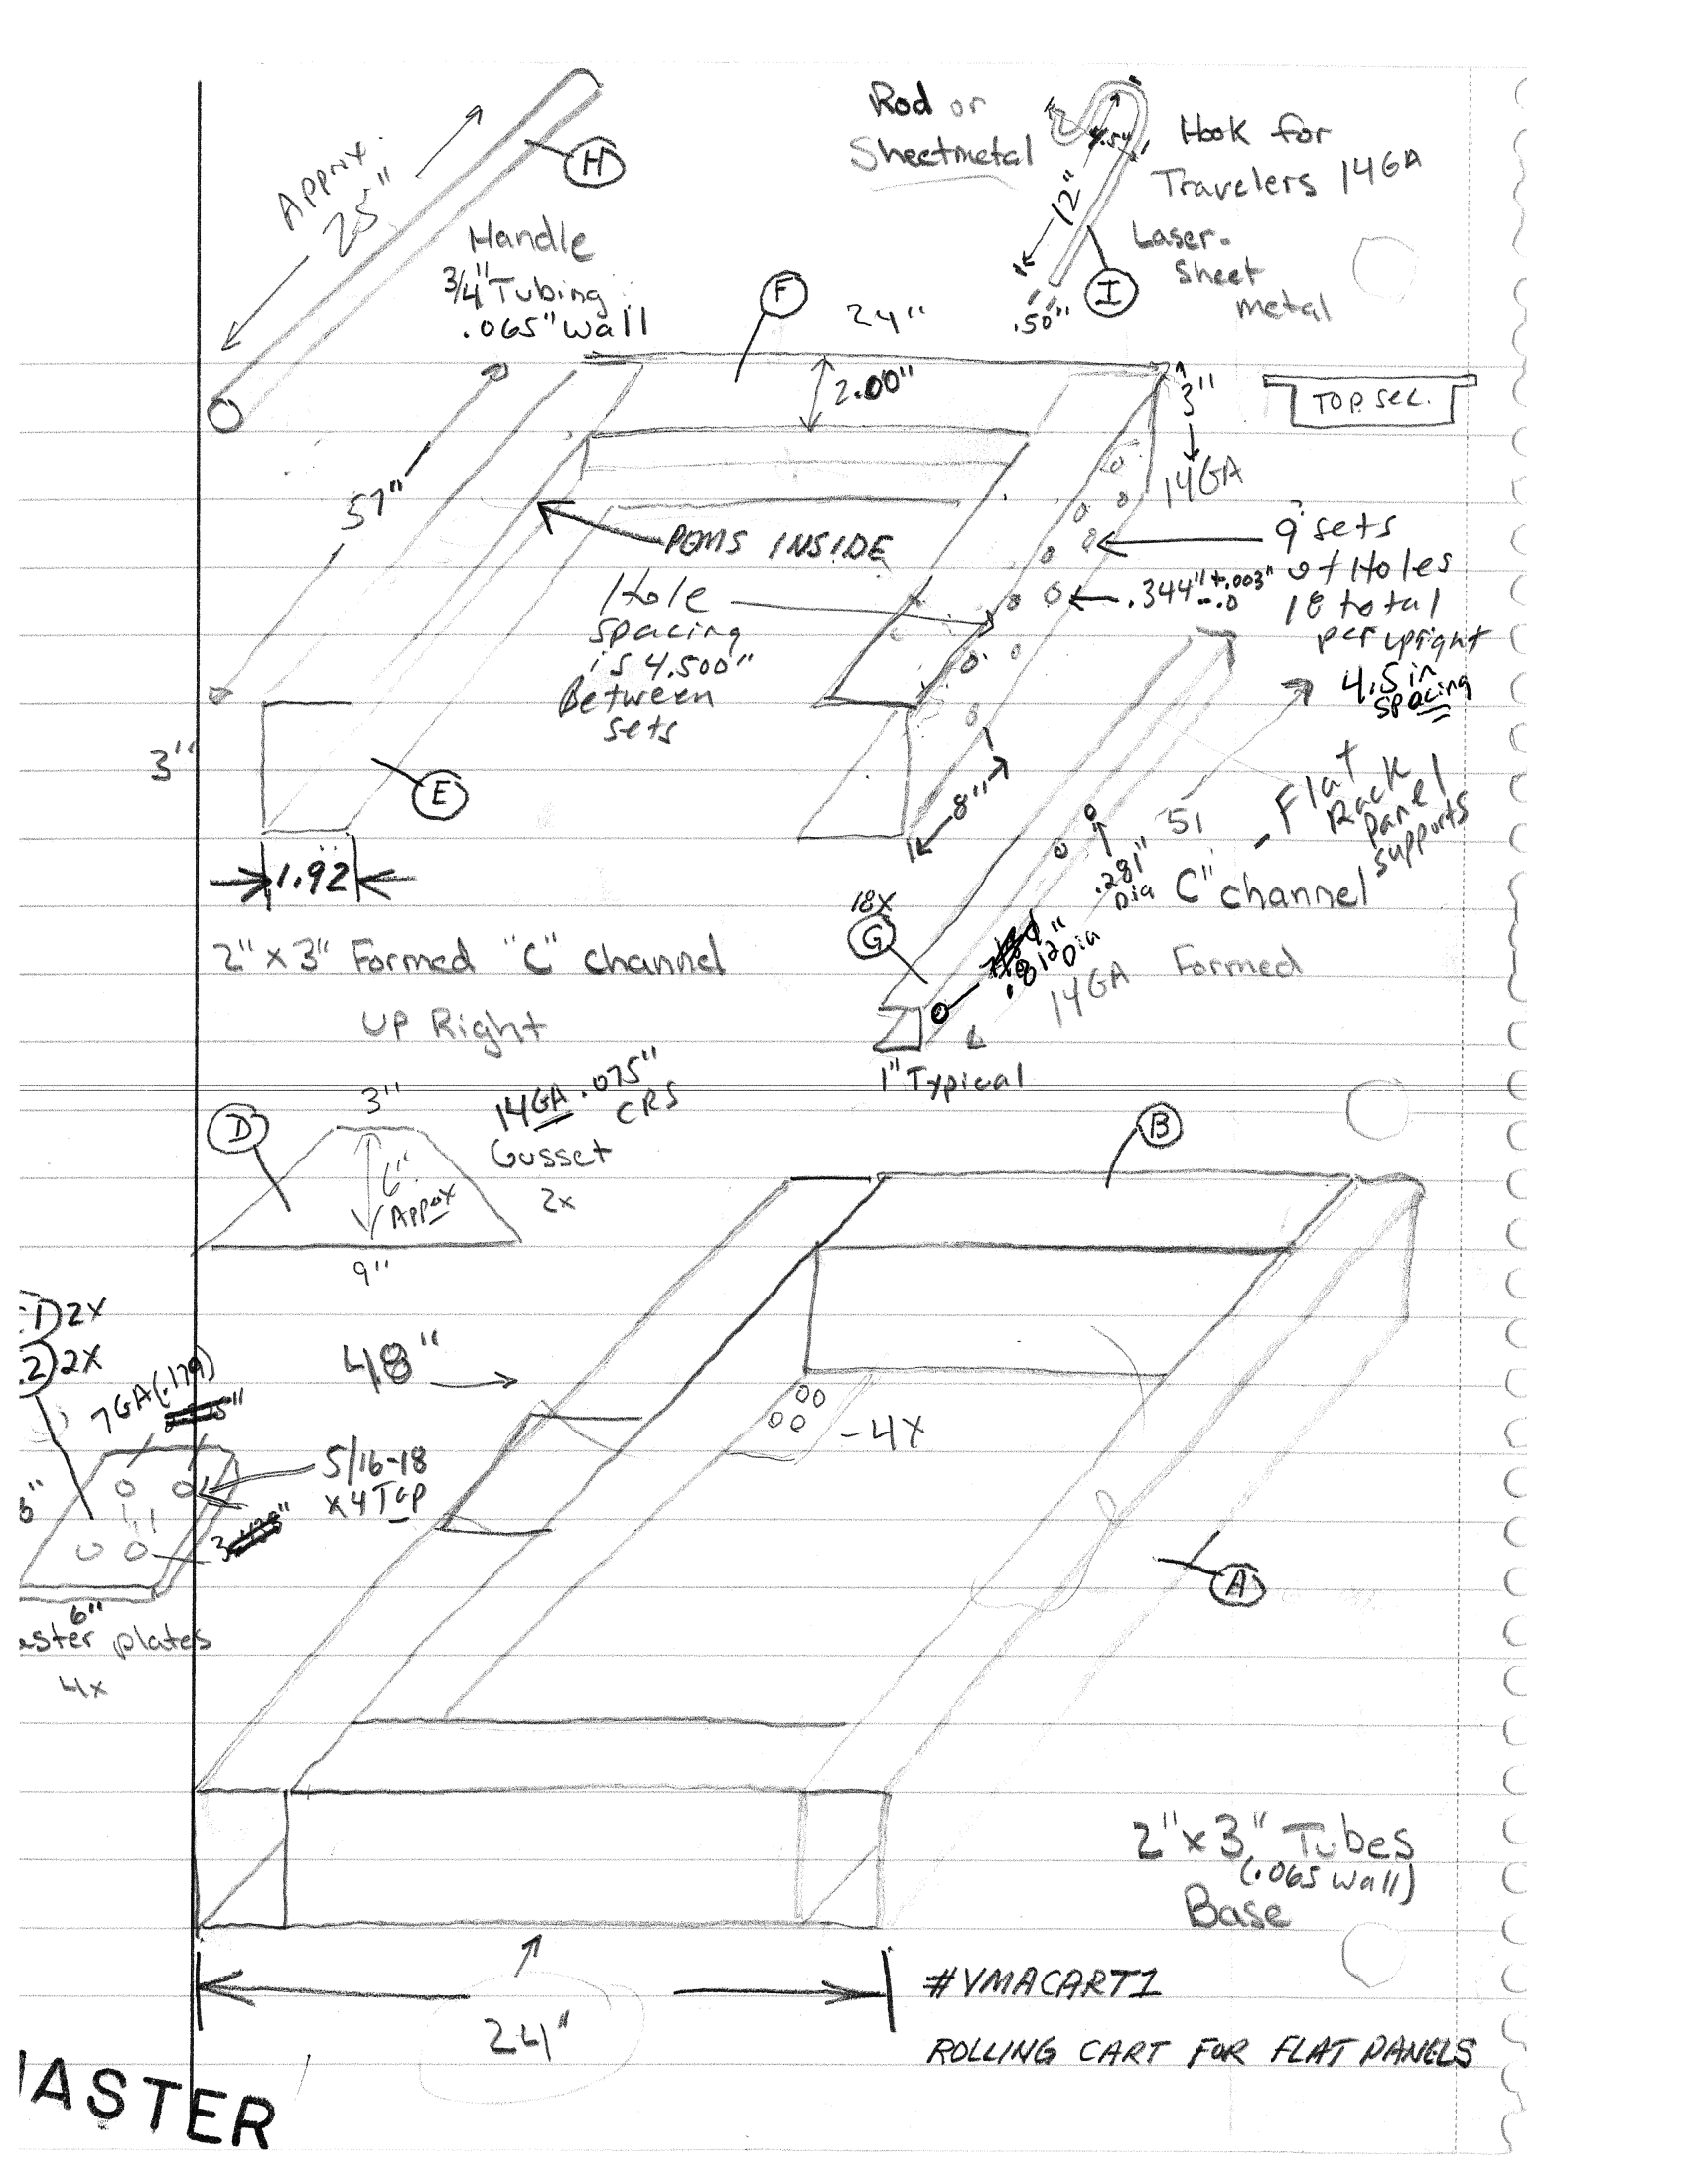 Approx.
25"
H
Handle
3/4" Tubing
.065" wall
Rod or
Sheetmetal
4.5"
12"
.50"
I
Hook for
Travelers 14GA
Laser-
Sheet
metal
F
24"
2.00"
3"
14GA
TOP SEC.
57"
PEMS INSIDE
Hole
spacing
is 4.500"
Between
sets
9 sets
of Holes
18 total
per upright
4.5 in
spacing
.344" +.003"
-.0
8"
3"
E
1.92
2" x 3" Formed "C" channel
UP Right
18X
G
.281"
Dia
.812 Dia
51
- Flat
Rack
panel
supports
C" channel
14GA Formed
1" Typical
D
3"
6"
Approx
9"
14GA .075"
CRS
Gusset
2x
B
2X
2) 2X
7GA (.179)
5/16-18
x 4 TAP
6"
aster plates
4x
48"
-4X
A
2" x 3" Tubes
(.065 wall)
Base
24"
#VMACART1
ROLLING CART FOR FLAT PANELS
ASTER